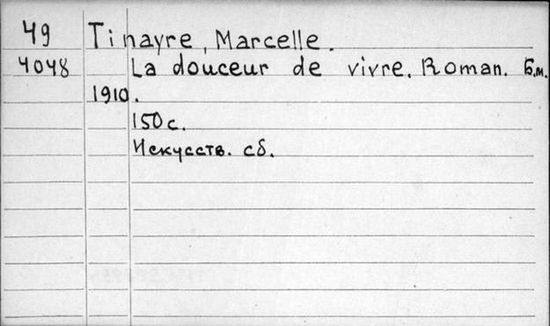 49 Tinayre, Marcelle.
4048 La douceur de vivre. Roman. Б.м.
1910.
150 с.
Искусств. сб.